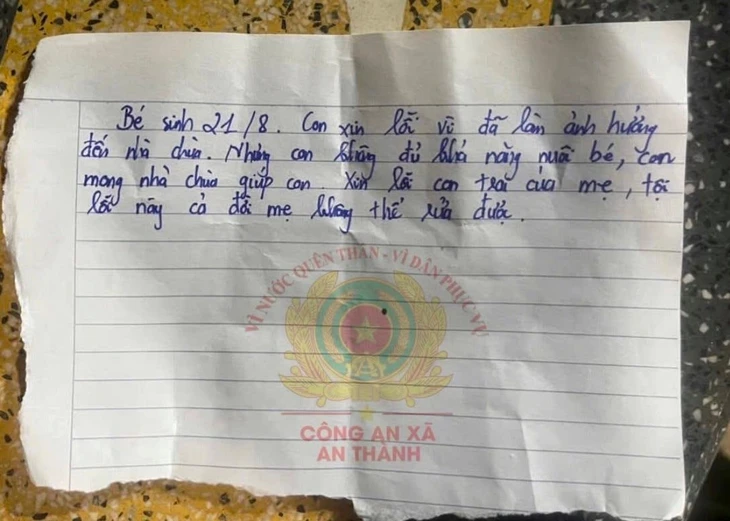 Bé sinh 21/8. Con xin lỗi vì đã làm ảnh hưởng
đến nhà chùa. Nhưng con không đủ khả năng nuôi bé, con
mong nhà chùa giúp con. Xin lỗi con trai của mẹ, tội
lỗi này cả đời mẹ không thể rửa được.
VÌ NƯỚC QUÊN THÂN - VÌ DÂN PHỤC VỤ
CÔNG AN XÃ
AN THẠNH